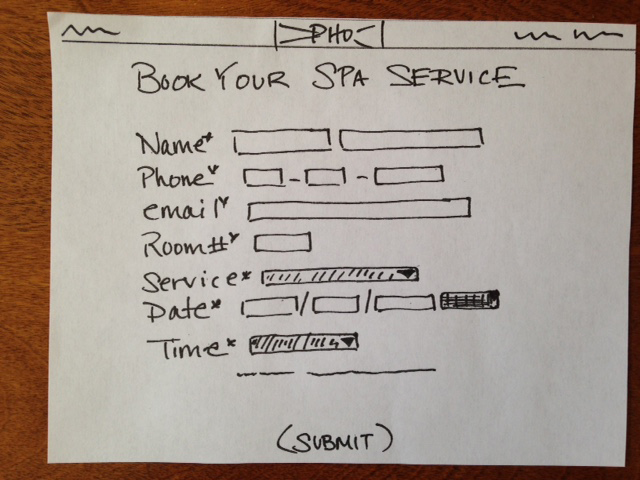 PHO
BOOK YOUR SPA SERVICE
Name*
Phone* - -
email*
Room#*
Service*
Date* / /
Time*
(SUBMIT)